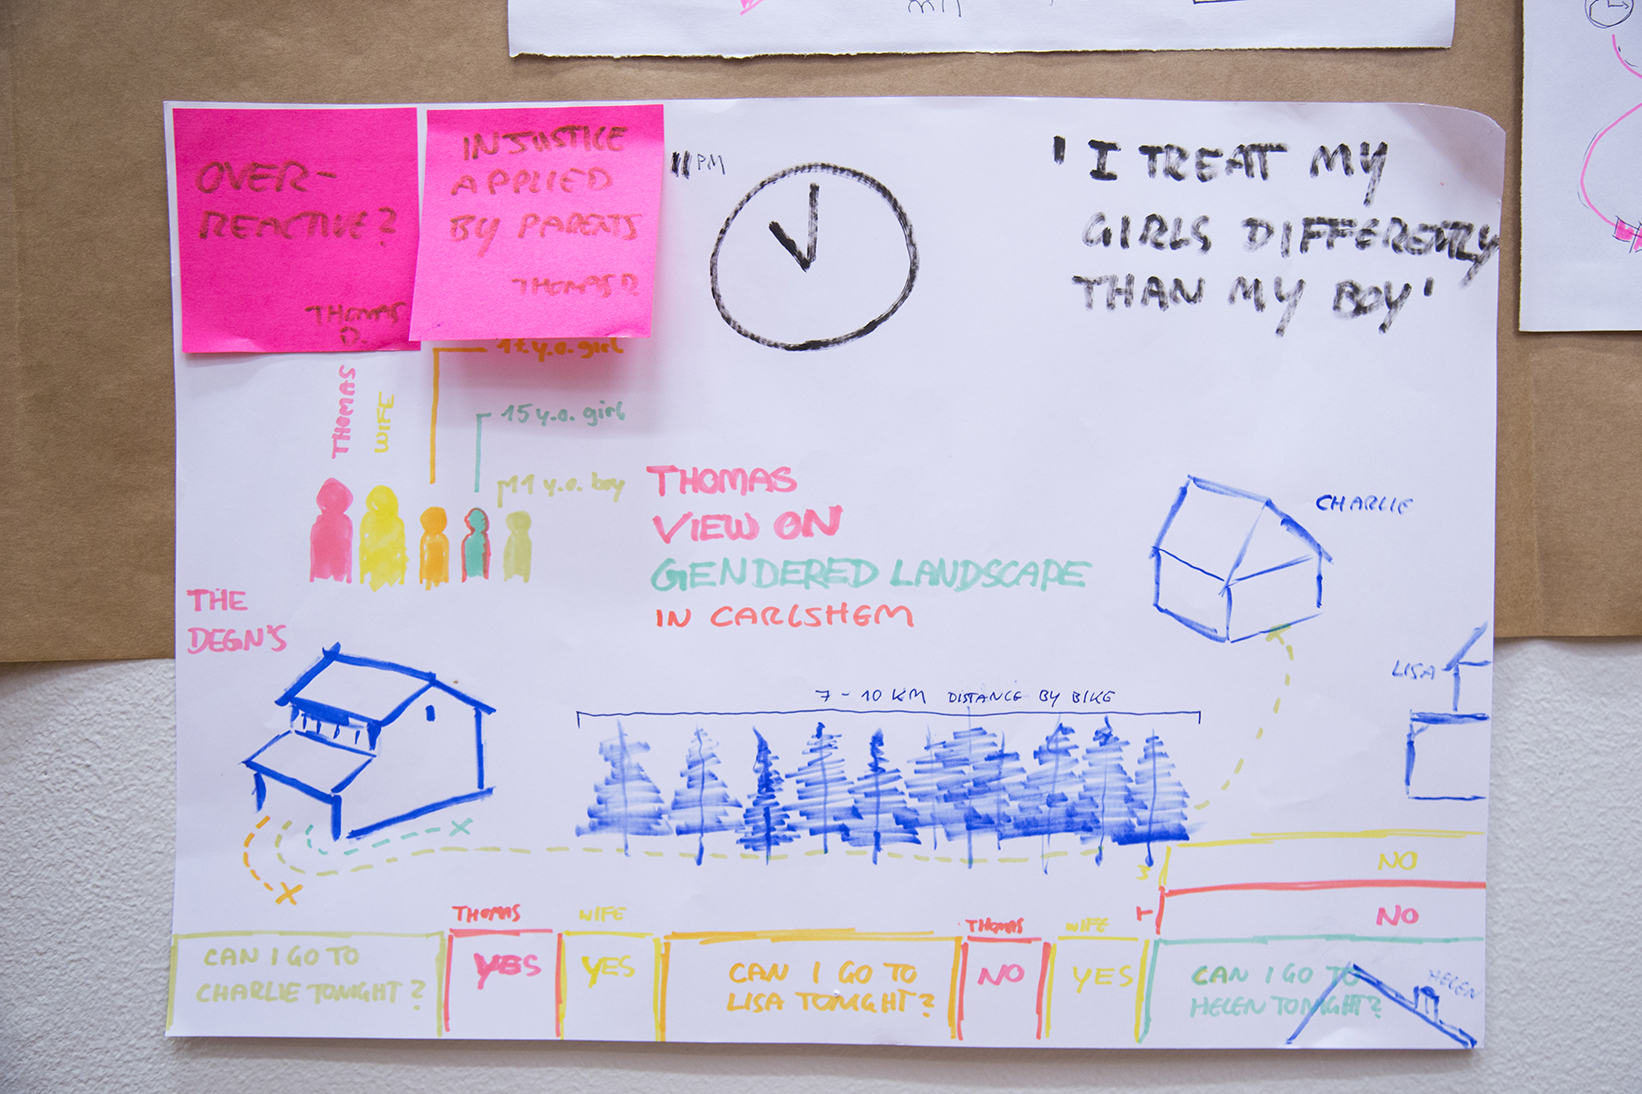 OVER-
REACTIVE?
THOMAS
D.
INJUSTICE
APPLIED
BY PARENTS
THOMAS D.
11 PM
'I TREAT MY
GIRLS DIFFERENTLY
THAN MY BOY'
THOMAS
WIFE
17 y.o. girl
15 y.o. girl
11 y.o. boy
THOMAS
VIEW ON
GENDERED LANDSCAPE
IN CARLSHEM
CHARLIE
THE
DEGN'S
LISA
7 - 10 KM DISTANCE BY BIKE
W
NO
T
NO
THOMAS
WIFE
THOMAS
WIFE
CAN I GO TO
CHARLIE TONIGHT?
YES
YES
CAN I GO TO
LISA TONIGHT?
NO
YES
CAN I GO TO
HELEN TONIGHT?
HELEN